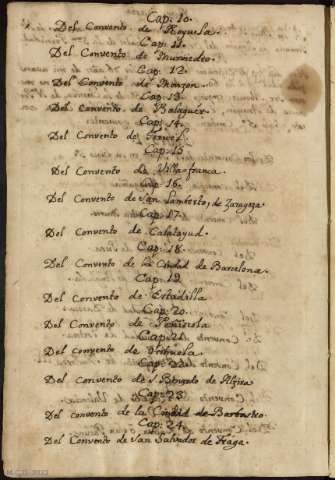 Cap. 10.
Del Convento de Royuela.
Cap. 11.
Del Convento de Murviedro.
Cap. 12.
Del Convento de Monzon.
Cap. 13.
Del Convento de Balaguer.
Cap. 14.
Del Convento de Teruel.
Cap. 15
Del Convento de Villa-franca.
Cap. 16.
Del Convento de San Lamberto, de Zaragoza.
Cap. 17.
Del Convento de Calatayud.
Cap. 18.
Del Convento de la Ciudad de Barcelona.
Cap. 19
Del Convento de Estadilla
Cap. 20.
Del Convento de Peñiscola
Cap. 21.
Del Convento de Orihuela.
Cap. 22.
Del Convento de S. Bernardo de Alzira.
Cap. 23.
Del convento de la Ciudad de Barbastro.
Cap. 24.
Del Convento de San Salvador de Fraga.